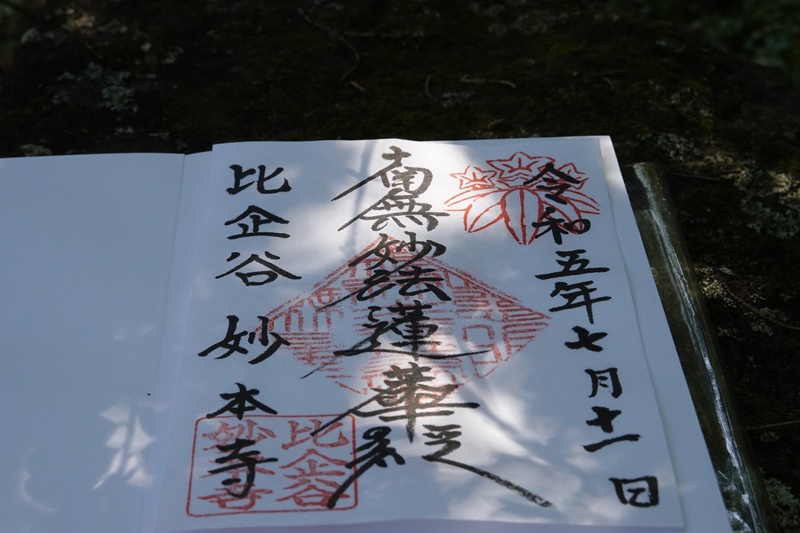 令和五年七月十一日
南無妙法蓮華経
比企谷妙本寺
比企谷
妙本寺